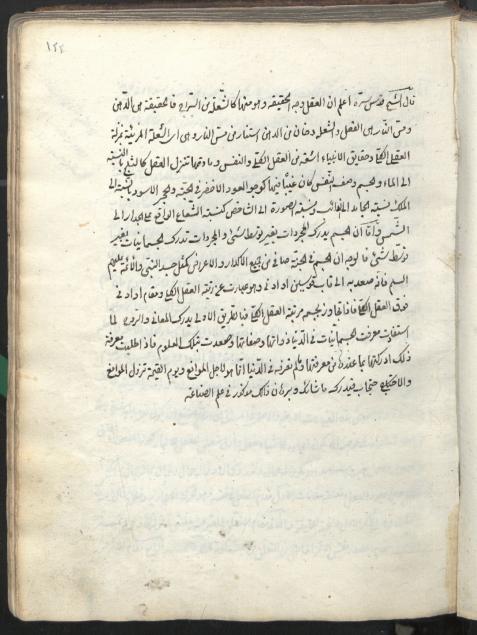 ١٢٤
قال الشيخ قدس سره اعلم ان العقل وجه الحقيقة وهو منها كالشعلة من السراج فالحقيقة هى الدهن
ومس النار هى الفعل والشعلة دخان من الدهن استنار من مس النار وهى اى الشعلة المرئية بمنزلة
العقل الكلى وحقايق الانبياء اشعة من العقل الكلى والنفس وما دونها تنزل العقل كالثلج بالنسبة
الى الماء والجسم وصف النفس كان غيبا فيها كوجود العود الاخضر فى الحبة والحجر الاسود بالنسبة الى
الملك نسبة الجامد الى الذائب ونسبة الصورة الى الشاخص كنسبة الشعاع الواقع على الجدار الى
الشمس واما ان الجسم يدرك المجردات بغير توسط شئ والمجردات تدرك الجسمانيات بغير
توسط شئ فالوجه ان الجسم فى الجنة صافى من جميع الاكدار والاعراض كمثل جسد النبى والائمة عليهم
السلم فانه صعد به الى قاب قوسين او ادنى وهو عبارت عن رتبة العقل الكلى ومقام او ادنى
فوق العقل الكلى فاذا تجاوز بجسمه مرتبة العقل الكلى فبالطريق الاولى يدرك المعانى والروح لما
استفادت معرفت الجسمانيات فى الدنيا ذواتها وصفاتها وصعدت بتلك العلوم فاذا طلبت معرفة
ذلك ادركتها بما عندها من معرفتها وان لم تعرفه فى الدنيا انما هو لاجل الموانع ويوم القيمة تزول الموانع
والا حجاب فيدرك ما شائت وبرهان ذلك مذكور فى علم الصناعة